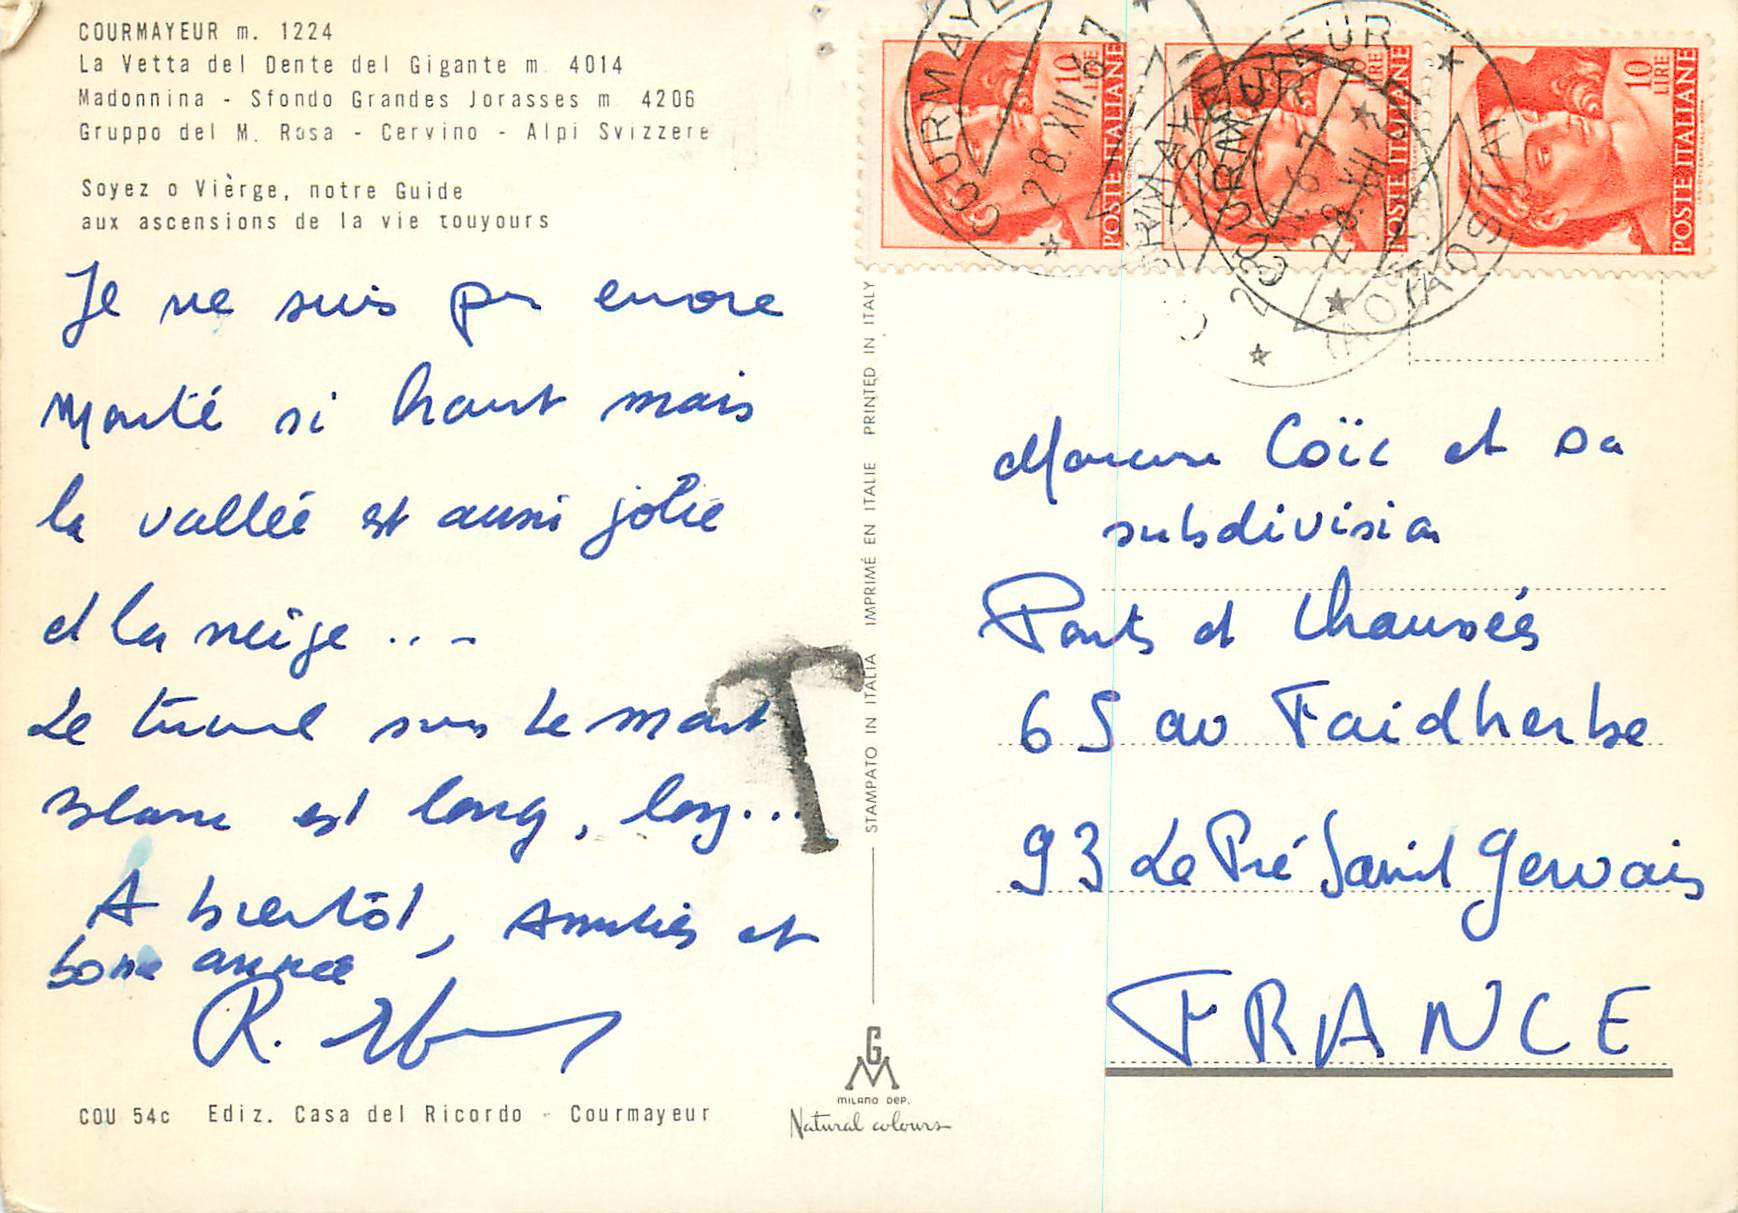 COURMAYEUR m. 1224
La Vetta del Dente del Gigante m. 4014
Madonnina - Sfondo Grandes Jorasses m. 4206
Gruppo del M. Rosa - Cervino - Alpi Svizzere
Soyez o Vièrge, notre Guide
aux ascensions de la vie touyours
Je ne suis pas encore
Monté si haut mais
la vallée est aussi jolie
et la neige ...
Le tunnel sous le mont
Blanc est long, long...
A bientôt, Amitiés et
bonne année
R.
COU 54c Ediz. Casa del Ricordo - Courmayeur
STAMPATO IN ITALIA IMPRIMÉ EN ITALIE PRINTED IN ITALY
T
GM
MILANO DEP.
Natural colours
10 LIRE
POSTE ITALIANE
10 LIRE
POSTE ITALIANE
10 LIRE
POSTE ITALIANE
COURMAYEUR
28.XII.67
AOSTA
Monsieur Coïc et sa
subdivision
Ponts et Chaussées
65 av Faidherbe
93 Le Pré Saint Gervais
FRANCE